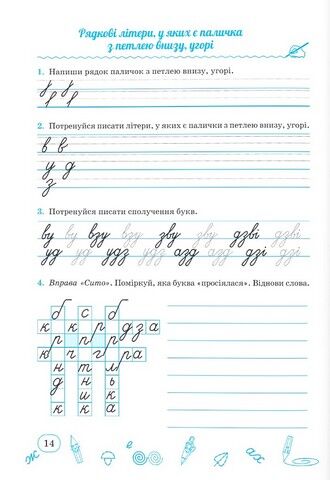 Рядкові літери, у яких є паличка
з петлею внизу, угорі
1. Напиши рядок паличок з петлею внизу, угорі.
2. Потренуйся писати літери, у яких є палички з петлею внизу, угорі.
в в
у д
з
3. Потренуйся писати сполучення букв.
ву ву взу взу зву зву дзві дзві
уд уд удз удз азд азд дзі дзі
4. Вправа «Сито». Поміркуй, яка буква «просіялася». Віднови слова.
б с б
к к р дза
р п р
к ч г ра
н т м
д н ь
и ш к
к к а
14
ж е ах